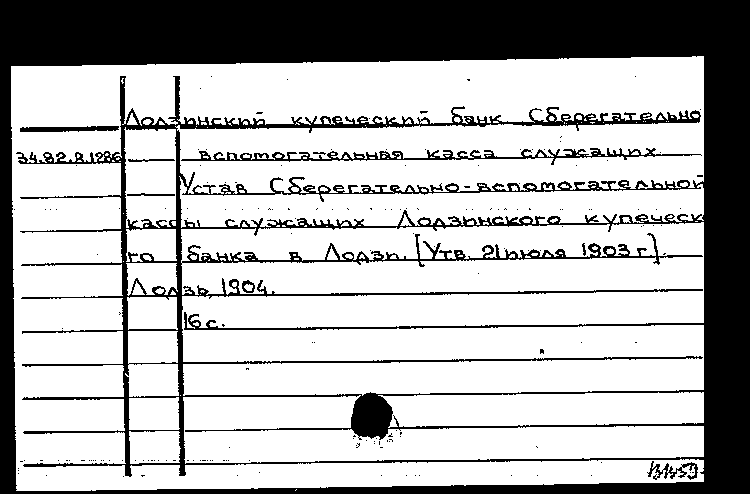 Лодзинский купеческий банк Сберегательно
34.82.8.1286 вспомогательная касса служащих
Устав Сберегательно-вспомогательной
кассы служащих Лодзинского купеческ
го банка в Лодзи. [Утв. 21 июля 1903 г].
Лодзь, 1904.
16 с.